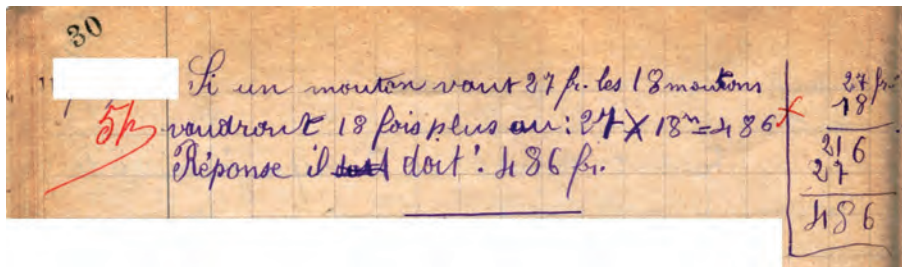 30
Si un mouton vaut 27 fr. les 18 moutons
5p vaudront 18 fois plus ou : 27 X 18ᵐ = 486
Réponse il doit : 486 fr.
27 fr.
18
216
27
486